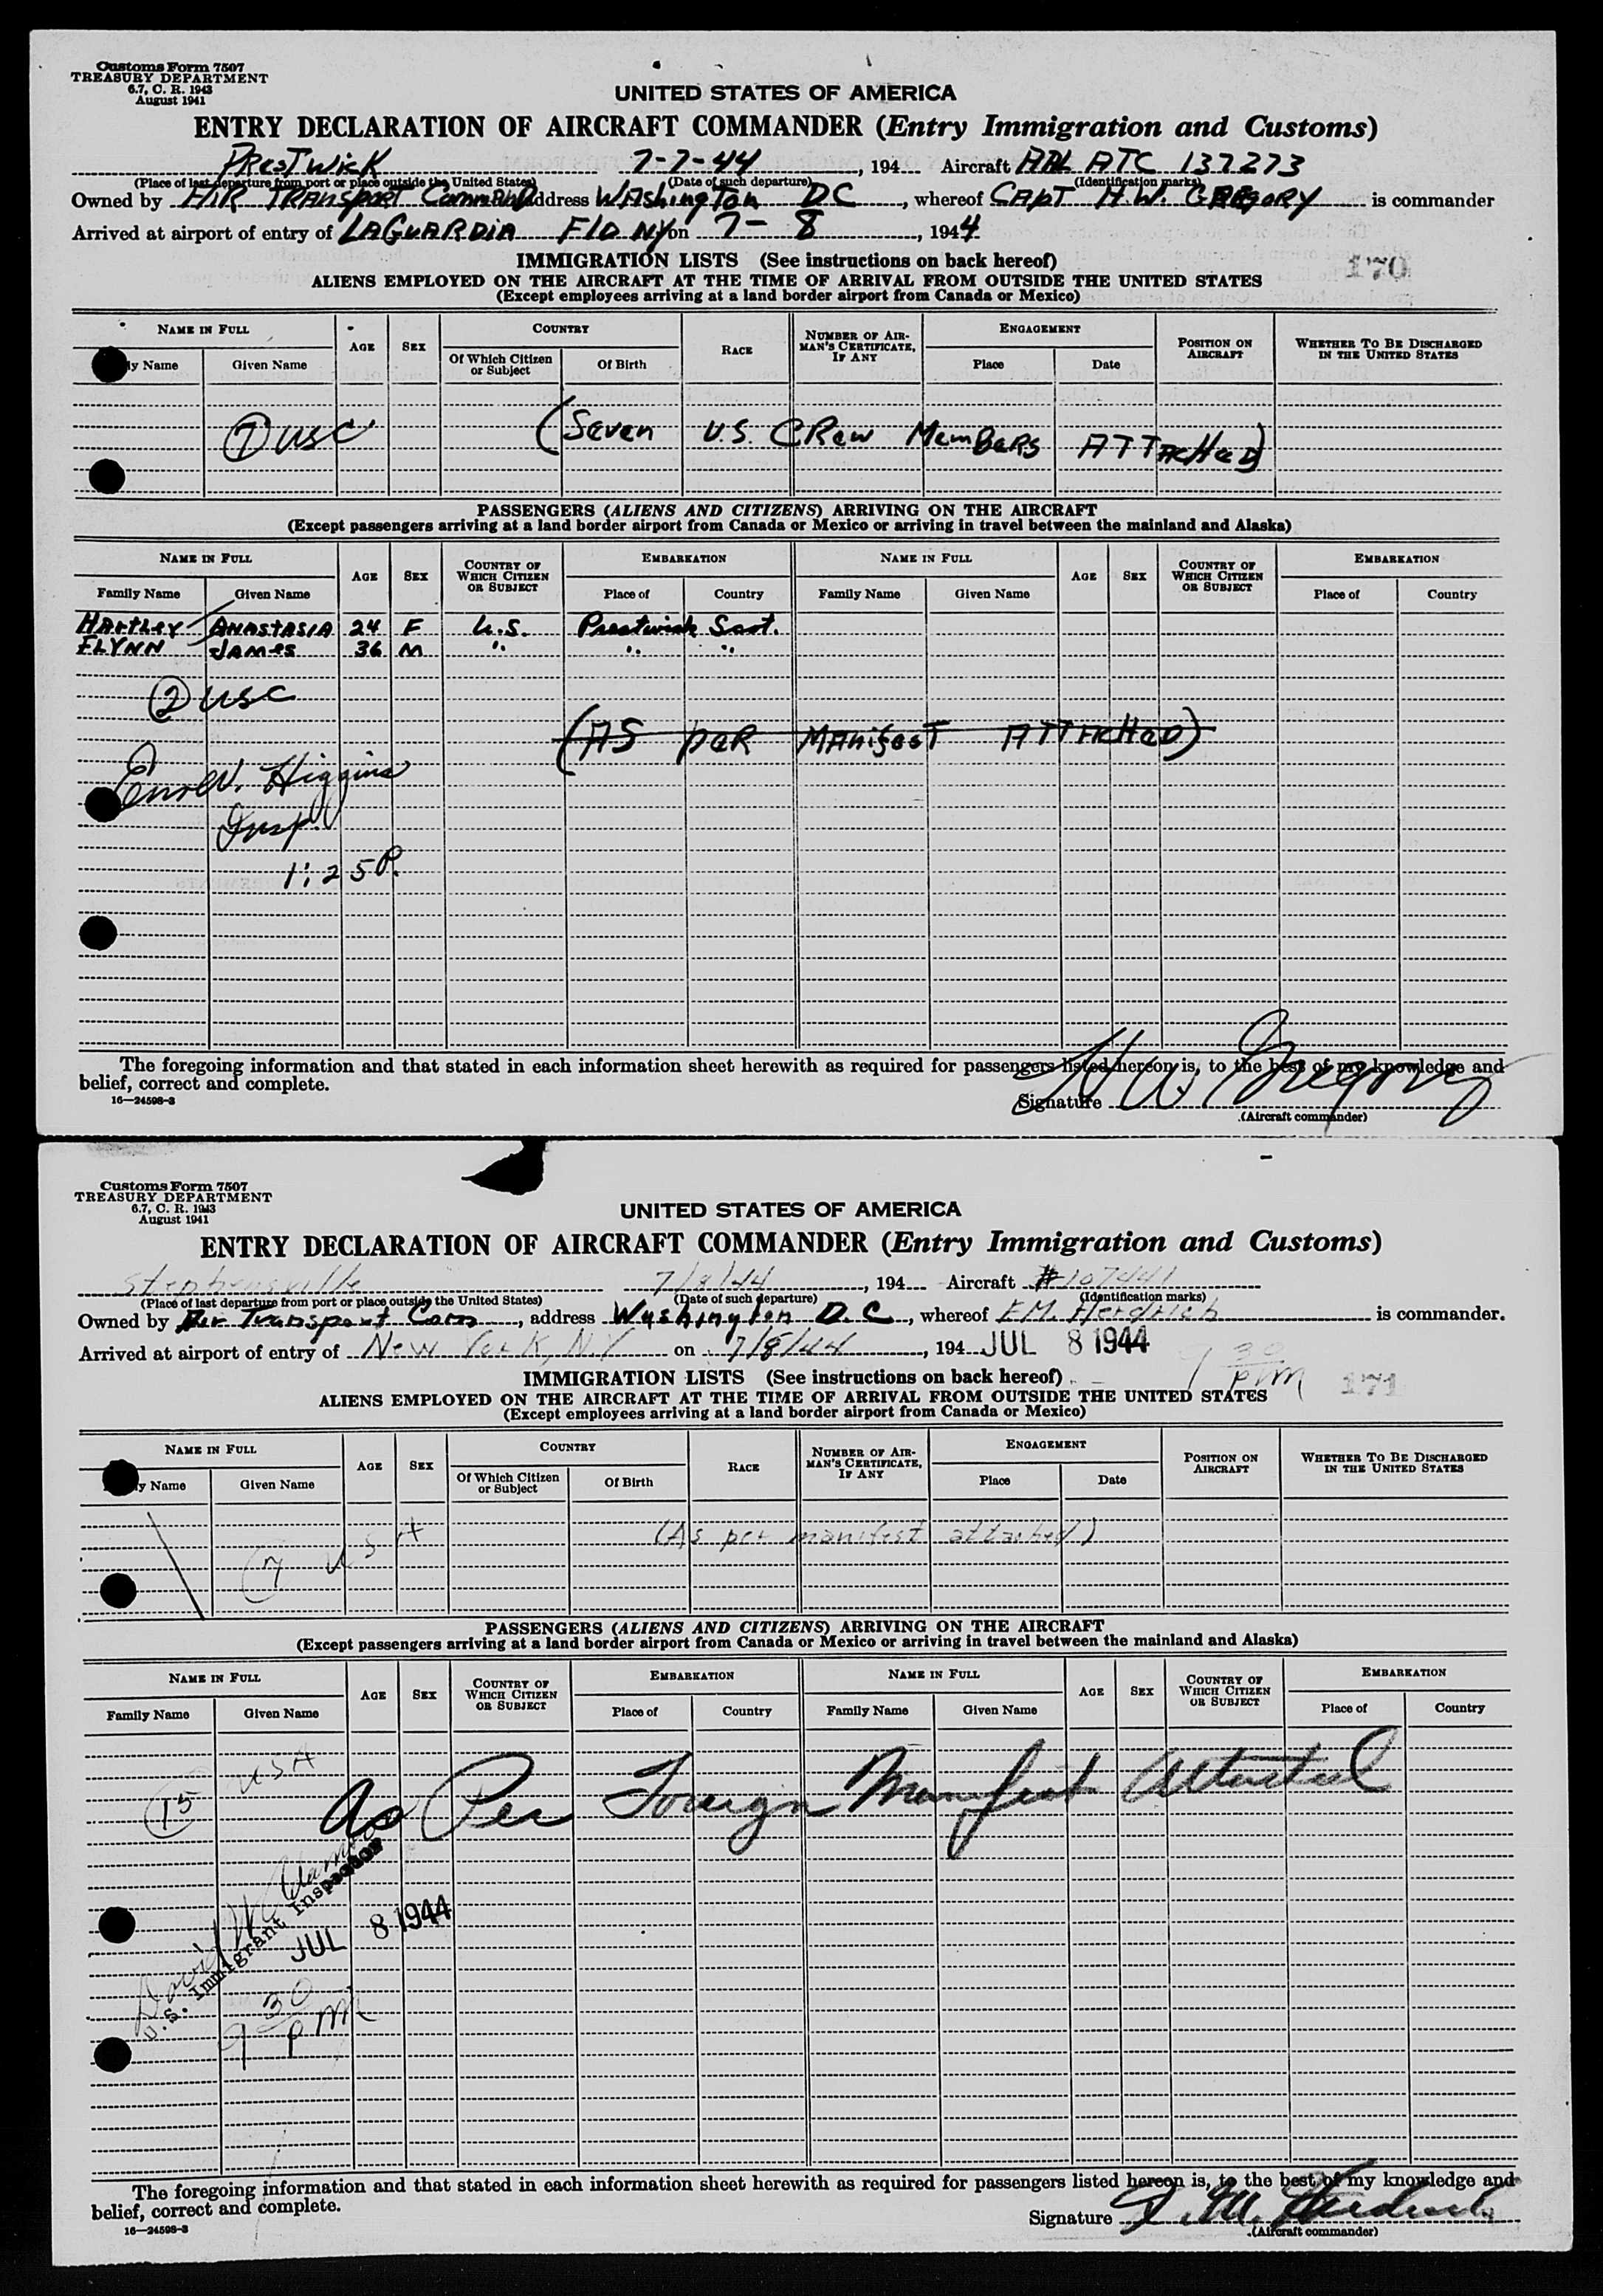 Customs Form 7507
TREASURY DEPARTMENT
6.7, C. R. 1943
August 1941
UNITED STATES OF AMERICA
ENTRY DECLARATION OF AIRCRAFT COMMANDER (Entry Immigration and Customs)
Prestwick 7-7-44, 194 Aircraft ATC 137273
(Place of last departure from port or place outside the United States) (Date of such departure) (Identification marks)
Owned by AIR TRANSPORT Command address Washington DC, whereof CAPT H.W. GREGORY is commander
Arrived at airport of entry of LAGUARDIA FLD NY on 7-8, 1944
170
IMMIGRATION LISTS (See instructions on back hereof)
ALIENS EMPLOYED ON THE AIRCRAFT AT THE TIME OF ARRIVAL FROM OUTSIDE THE UNITED STATES
(Except employees arriving at a land border airport from Canada or Mexico)
NAME IN FULL AGE SEX COUNTRY RACE NUMBER OF AIRMAN'S CERTIFICATE, IF ANY ENGAGEMENT POSITION ON AIRCRAFT WHETHER TO BE DISCHARGED IN THE UNITED STATES
ly Name Given Name Of Which Citizen or Subject Of Birth Place Date
7 USC (Seven U.S. CRew MemBeRS ATTACHeD)
PASSENGERS (ALIENS AND CITIZENS) ARRIVING ON THE AIRCRAFT
(Except passengers arriving at a land border airport from Canada or Mexico or arriving in travel between the mainland and Alaska)
NAME IN FULL AGE SEX COUNTRY OF WHICH CITIZEN OR SUBJECT EMBARKATION NAME IN FULL AGE SEX COUNTRY OF WHICH CITIZEN OR SUBJECT EMBARKATION
Family Name Given Name Place of Country Family Name Given Name Place of Country
HARTLEY ANASTASIA 24 F U.S. Prestwick Scot.
FLYNN JAMES 36 M " " "
2 USC
(AS peR MANifesT ATTACHeD)
Higgins
Insp.
1:25 P.
The foregoing information and that stated in each information sheet herewith as required for passengers listed hereon is, to the best of my knowledge and
belief, correct and complete.
16—24598-3
Signature H W Gregory
(Aircraft commander)
Customs Form 7507
TREASURY DEPARTMENT
6.7, C. R. 1943
August 1941
UNITED STATES OF AMERICA
ENTRY DECLARATION OF AIRCRAFT COMMANDER (Entry Immigration and Customs)
Stephensville 7/8/44, 194 Aircraft #107441
(Place of last departure from port or place outside the United States) (Date of such departure) (Identification marks)
Owned by Air Transport Com, address Washington D.C, whereof F.M. Herdrich is commander.
Arrived at airport of entry of New York, N.Y on 7/8/44, 194 JUL 8 1944
9 30 pm 171
IMMIGRATION LISTS (See instructions on back hereof)
ALIENS EMPLOYED ON THE AIRCRAFT AT THE TIME OF ARRIVAL FROM OUTSIDE THE UNITED STATES
(Except employees arriving at a land border airport from Canada or Mexico)
NAME IN FULL AGE SEX COUNTRY RACE NUMBER OF AIRMAN'S CERTIFICATE, IF ANY ENGAGEMENT POSITION ON AIRCRAFT WHETHER TO BE DISCHARGED IN THE UNITED STATES
y Name Given Name Of Which Citizen or Subject Of Birth Place Date
7 USA (As per manifest attached)
PASSENGERS (ALIENS AND CITIZENS) ARRIVING ON THE AIRCRAFT
(Except passengers arriving at a land border airport from Canada or Mexico or arriving in travel between the mainland and Alaska)
NAME IN FULL AGE SEX COUNTRY OF WHICH CITIZEN OR SUBJECT EMBARKATION NAME IN FULL AGE SEX COUNTRY OF WHICH CITIZEN OR SUBJECT EMBARKATION
Family Name Given Name Place of Country Family Name Given Name Place of Country
15 USA
As Per Foreign Manifest Attached
David
U.S. Immigrant Inspector
JUL 8 1944
9 30 pm
The foregoing information and that stated in each information sheet herewith as required for passengers listed hereon is, to the best of my knowledge and
belief, correct and complete.
16—24598-3
Signature F. M. Herdrich
(Aircraft commander)